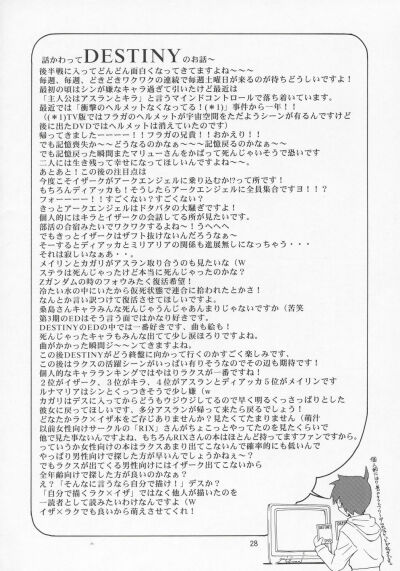 話かわってDESTINYのお話〜
後半戦に入ってどんどん面白くなってきてますよね〜〜〜
毎週、毎週、どきどきワクワクの連続で毎週土曜日が来るのが待ちどうしいですよ！
最初の頃はシンが嫌なキャラ過ぎて引いたけど最近は
「主人公はアスランとキラ」と言うマインドコントロールで落ち着いています。
最近では「衝撃のヘルメットなくなってる！(＊1)」事件から一年！！
((＊1)TV版ではフラガのヘルメットが宇宙空間をただようシーンが有るんですけど
後に出たDVDではヘルメットは消えていたのです)
帰ってきましたーーーーー！！フラガの兄貴！！おかえり！！
でも記憶喪失か〜〜どうなるのかなぁ〜〜〜記憶戻るのかなぁ〜〜
でも記憶戻った瞬間またマリューさんをかばって死んじゃいそうで恐いです
二人には生き残って幸せになってほしいんですよね〜〜〜。
あとあと！この後の注目点は
今度こそイザークがアークエンジェルに乗り込むか!?って所です！
もちろんディアッカも！そうしたらアークエンジェルに全員集合ですヨ！！？
フォーーーーー！！すごくない？すごくない？
きっとアークエンジェルはドタバタの大騒ぎですよ！
個人的にはキラとイザークの会話してる所が見たいです。
部活の合宿みたいでワクワクするよね〜！うへへへ
でもきっとイザークはザフト抜けないんだろうなぁ〜
そーするとディアッカとミリアリアの関係も進展無しになっちゃう・・・
それは寂しいなぁあ・・。
メイリンとカガリがアスラン取り合うのも見たいな（W
ステラは死んじゃったけど本当に死んじゃったのかな？
Zガンダムの時のフォウみたく復活希望！
冷たい水の中にいたから仮死状態で連合に拾われたとかさ！
なんとか言い訳つけて復活させてほしいですよ。
桑島さんキャラみんな死んじゃうんじゃあんまりじゃないですか（苦笑
第3期のEDはそう言う面ではかなり好きです。
DESTINYのEDの中では一番好きです、曲も絵も！
死んじゃったキャラもみんな出てて少し涙ほろりですよね。
曲がかかった瞬間ジ〜〜ンてきますよね。
この後DESTINYがどう終盤に向かって行くのかすごく楽しみです、
この後はラクスの活躍シーンがいっぱい有りそうなのでその辺も期待です！
個人的なキャラランキングではやはりラクスが一番ですね！
２位がイザーク、３位がキラ、４位がアスランとディアッカ５位がメイリンです
ルナマリアはシンとくっつきそうで少し嫌（w
カガリはデスに入ってからどうもウジウジしてるので早く明るくさっぱりとした
彼女に戻ってほしいです、多分アスランが帰って来たら戻るでしょう！
どなたかラク×イザ本をご存じありませんか？見たくてたまりません（萌汁
以前女性向けサークルの「RIX」さんがちょこっとやってたのを見たくらいで
他で見た事ないんですよね、もちろんRIXさんの本はほとんど持ってますファンですから。
っていうか女性向けの本はラクスあまり出てこないんで確率的にも低いんで
やっぱり男性向けで探した方が早いんでしょうかねぇ〜？
でもラクスが出てくる男性向けにはイザーク出てこないから
全年齢向けで探した方が良いのかなぁ？
え？「そんなに言うなら自分で描け！」デスか？
「自分で描くラク×イザ」ではなく他人が描いたのを
一読者として読みたいわけなんですよ（W
イザ×ラクでも良いから萌えさせてくれ！
28